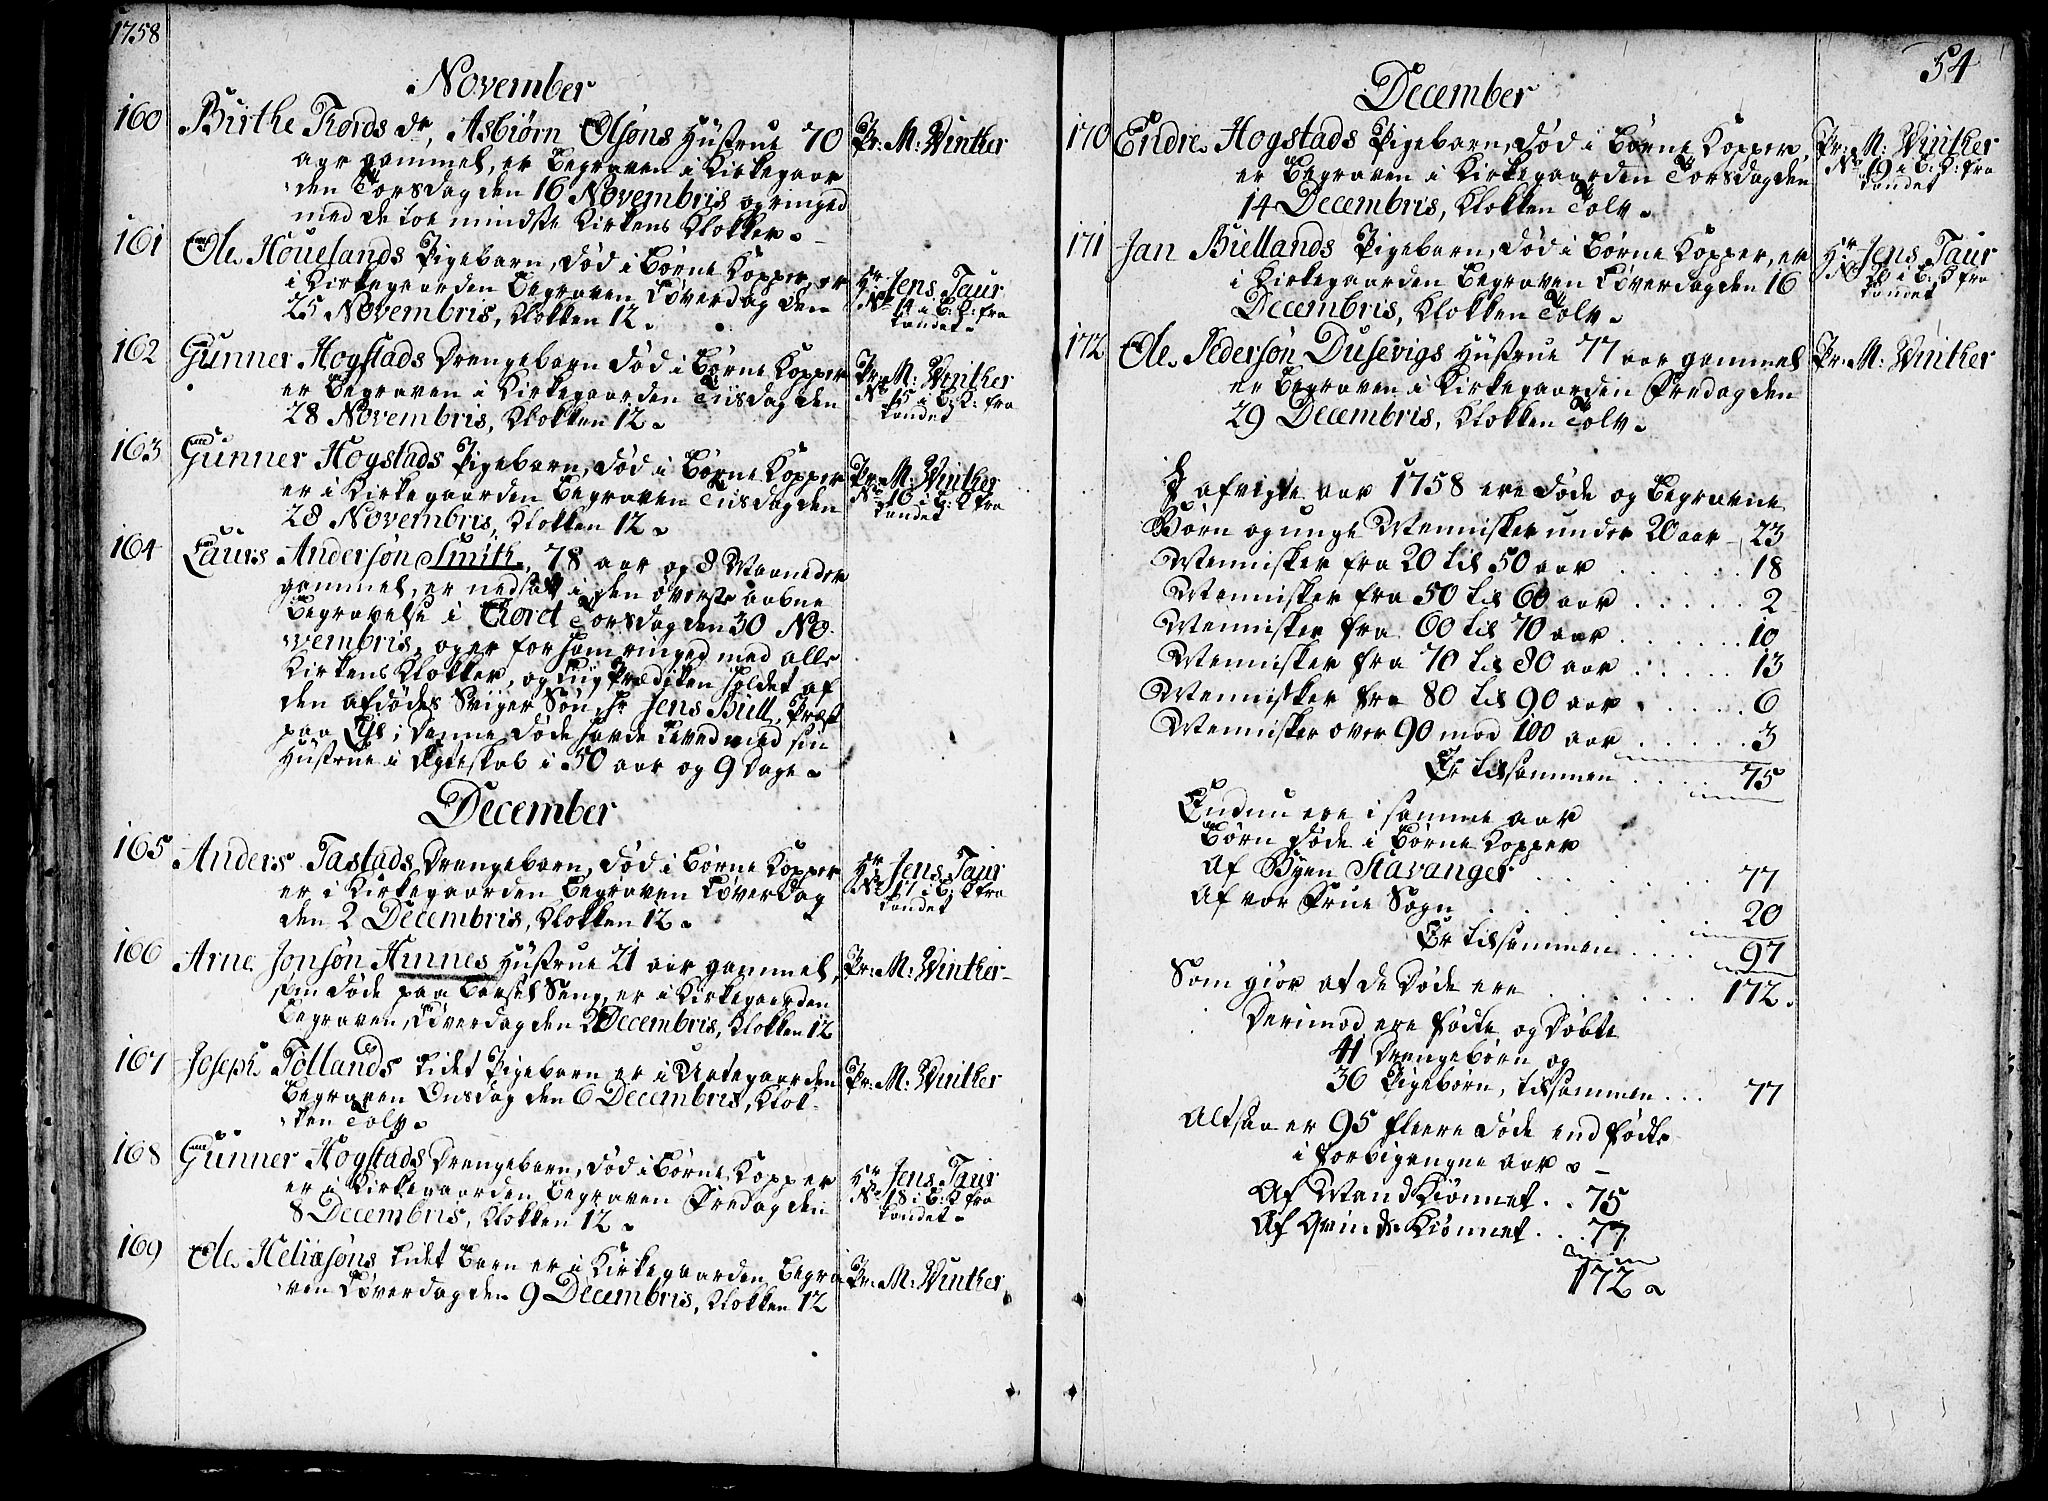 1758
November
160 Birthe Tordsdr, Asbiørn Olsøns Hüstrue 70
aar gammel, er Begraven i Kirkegaar
den Torsdag den 16 Novembris og ringed
med de toe mindste Kirkens Klokker.
Pr: M: Winther
161 Ole Houelands Pigebarn, død i Børne Kopper, er
i Kirkegaarden Begraven Løverdag den
25 Novembris, Klokken 12.
Hr Jens Taur
No 14 i B: K: fra
Landet.
162 Gunner Hogstads Drengebarn død i Børne Kopper
er Begraven i Kirkegaarden Tiisdag den
28 Novembris, Klokken 12.
Pr: M: Winther
No 15 i B: K: fra
Landet
163 Gunner Hogstads Pigebarn, død i Børne Kopper
er i Kirkegaarden Begraven Tiisdag den
28 Novembris, Klokken 12.
Pr: M: Winther
No 16 i B: K fra
Landet
164 Laurs Andersøn Smith, 78 aar og 8 Maaneder
gammel, er nedsat i den øverste aabne
Begravelse i Choret Torsdag den 30 No-
vembris, og er for ham ringed med alle
Kirkens Klokker, og Liig Prædiken holdet af
den afdødes Sviger Søn Hr Jens Bull, Præst
paa Lye; Denne døde havde Leved med sin
Hüstrue i Ægteskab i 50 aar og 9 Dage.
December
165 Anders Tastads Drengebarn, død i Børne Kopper
er i Kirkegaarden Begraven Løverdag
den 2 Decembris, Klokken 12.
Hr Jens Taur
No 17 i B: K fra
Landet
166 Arne Jonsøn Hinnes Hüstrue 21 aar gammel,
som døde paa Barsel Seng, er i Kirkegaarden
Begraven, Løverdag den 2 Decembris, Klokken 12
Pr: M: Winther
167 Joseph Tollands lidet Pigebarn er i Urtegaarden
Begraven Onsdag den 6 Decembris, Klok-
ken Tolv.
Pr: M: Winther
168 Gunner Hogstads Drengebarn, død i Børne Kopper
er i Kirkegaarden Begraven Fredag den
8 Decembris, Klokken 12.
Hr Jens Taur
No 18 i B: K fra
Landet.
169 Ole Heliasøns lidet Barn er i Kirkegaarden Begra
ven Løverdag den 9 Decembris, Klokken 12
Pr: M: Winther
54
December
170 Endre Hogstads Pigebarn, død i Børne Kopper,
er Begraven i Kirkegaarden Torsdag den
14 Decembris, Klokken Tolv.
Pr: M: Winther
No 19 i B: K: fra
Landet
171 Jan Bullands Pigebarn, død i Børne Kopper, er
i Kirkegaarden Begraven Løverdag den 16
Decembris, Klokken Tolv.
Hr Jens Taur
No 20 i B: K fra
Landet
172 Ole Pedersøn Dusevigs Hüstrue 77 aar gammel
er Begraven i Kirkegaarden Fredag den
29 Decembris, Klokken Tolv.
Pr: M: Winther
I afvigte aar 1758 ere døde og Begravne
Børn og unge Mennisker under 20 aar 23
Mennisker fra 20 til 50 aar . . . . . 18
Mennisker fra 50 til 60 aar . . . . . 2
Mennisker fra 60 til 70 aar . . . . . 10
Mennisker fra 70 til 80 aar . . . . . 13
Mennisker fra 80 til 90 aar . . . . . 6
Mennisker over 90 mod 100 aar . . . . . 3
Er tilsammen . . . . 75
Endnu ere i samme aar
Børn døde i Børne Kopper
Af Byen Stavanger . . . . . . 77
Af vor Frue Sogn . . . . . . 20
Er tilsammen . . . . 97
Som giør at de Døde ere . . . . . . 172.
Derimod ere fødte og Døbte
41 Drengebørn og
36 Pigebørn, tilsammen . . . 77
Altsaa er 95 fleere døde end fødte
i forbigangne aar.
Af Mand Kiønnet . . 75
Af Qvinde Kiønnet . . . 77
172.